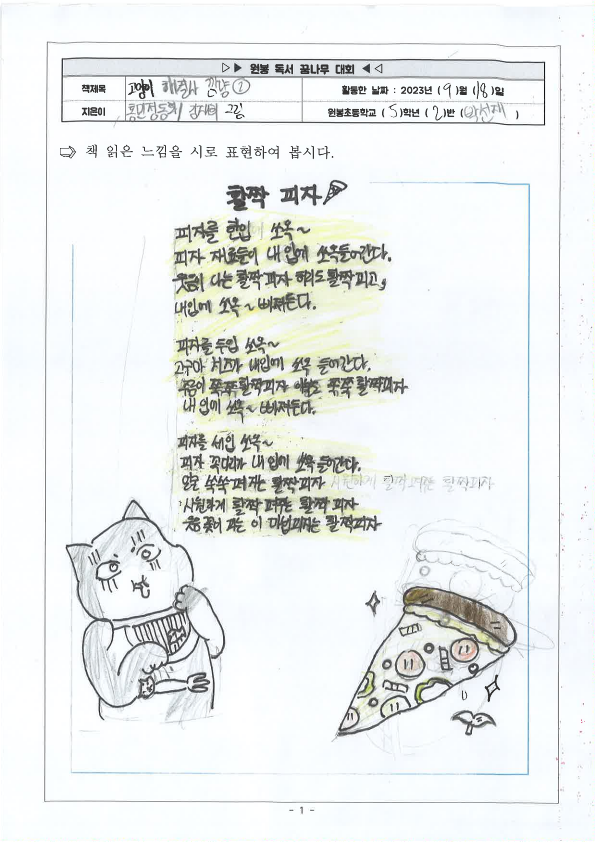 ▷▶ 원봉 독서 꿈나무 대회 ◀◁
책제목 고양이 해결사 깜냥 ① 활동한 날짜 : 2023년 (9)월 (18)일
지은이 홍민정 동화 김재희 그림 원봉초등학교 (5)학년 (2)반 (박선재)
⇨ 책 읽은 느낌을 시로 표현하여 봅시다.
활짝 피자
피자를 한입 쏘옥~
피자 재료들이 내 입에 쏘옥들어간다.
웃음이 나는 활짝 피자 허리도 활짝 피고,
내입에 쏘옥~ 빠져든다.
피자를 두입 쏘옥~
고구마 치즈가 내입에 쏘옥 들어간다.
쭉쭉 활짝피자 쭉쭉 활짝피자
내 입에 쏘옥~ 빠져든다.
피자를 세입 쏘옥~
피자 꼭다리가 내 입에 쏘옥 들어간다.
쑥쑥 퍼지는 활짝피자 시원하게 활짝 펴주는 활짝피자
시원하게 활짝 펴주는 활짝 피자
웃음꽃이 피는 이 마법피자는 활짝피자
- 1 -